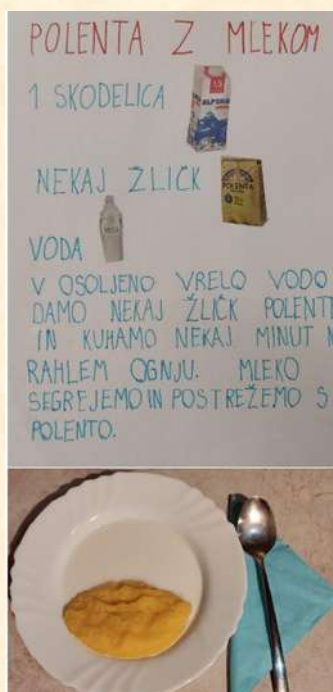 POLENTA Z MLEKOM
1 SKODELICA
ALPSKO
3.5
NEKAJ ŽLIČK
POLENTA
VODA
V OSOLJENO VRELO VODO
DAMO NEKAJ ŽLIČK POLENTE
IN KUHAMO NEKAJ MINUT N
RAHLEM OGNJU. MLEKO
SEGREJEMO IN POSTREŽEMO S
POLENTO.